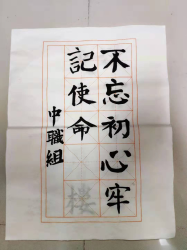 不忘初心牢
記使命
楼
中職組